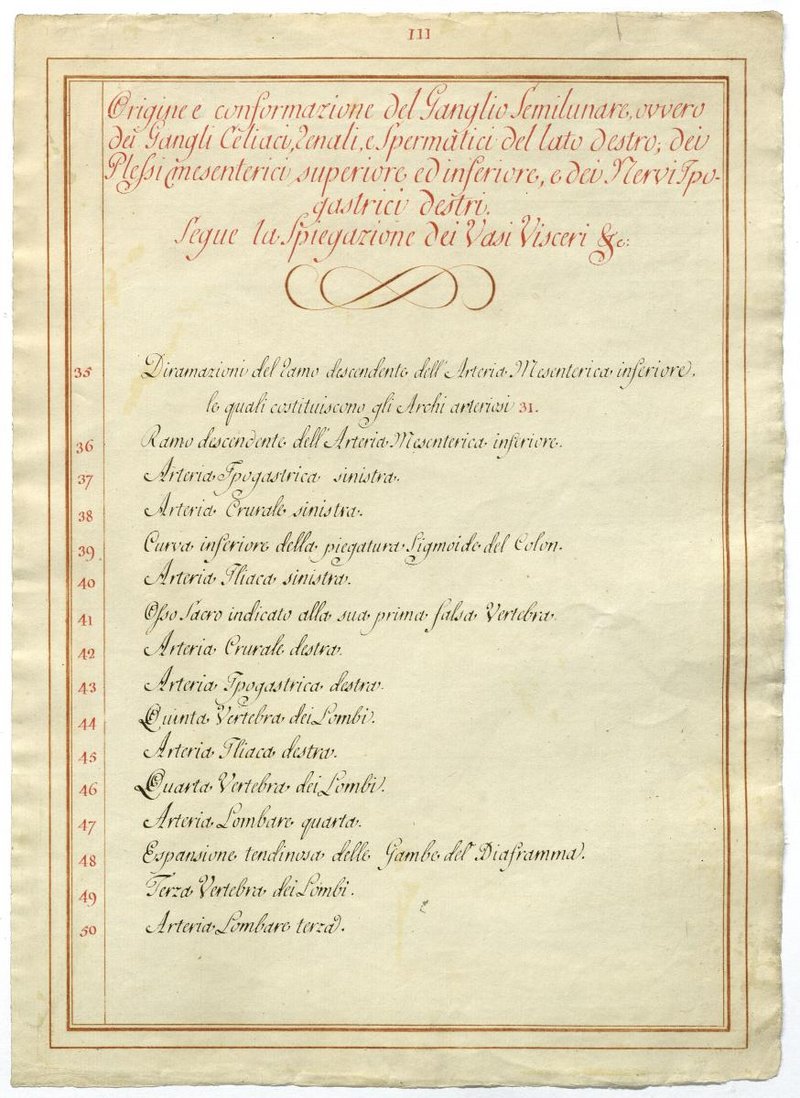 III
Origine e conformazione del Ganglio Semilunare, ovvero
dei Gangli Celiaci, Renali, e Spermatici del lato destro, dei
Plessi mesenterici superiore ed inferiore, e dei Nervi Ipo-
gastrici destri.
Segue la Spiegazione dei Vasi Visceri &c:
35 Diramazioni del Ramo descendente dell'Arteria Mesenterica inferiore.
le quali costituiscono gli Archi arteriosi 31.
36 Ramo descendente dell'Arteria Mesenterica inferiore.
37 Arteria Ipogastrica sinistra.
38 Arteria Crurale sinistra.
39 Curva inferiore della piegatura Sigmoide del Colon.
40 Arteria Iliaca sinistra.
41 Osso Sacro indicato alla sua prima falsa Vertebra
42 Arteria Crurale destra.
43 Arteria Ipogastrica destra.
44 Quinta Vertebra dei Lombi.
45 Arteria Iliaca destra.
46 Quarta Vertebra dei Lombi.
47 Arteria Lombare quarta.
48 Espansione tendinosa delle Gambe del Diaframma.
49 Terza Vertebra dei Lombi.
50 Arteria Lombare terza.